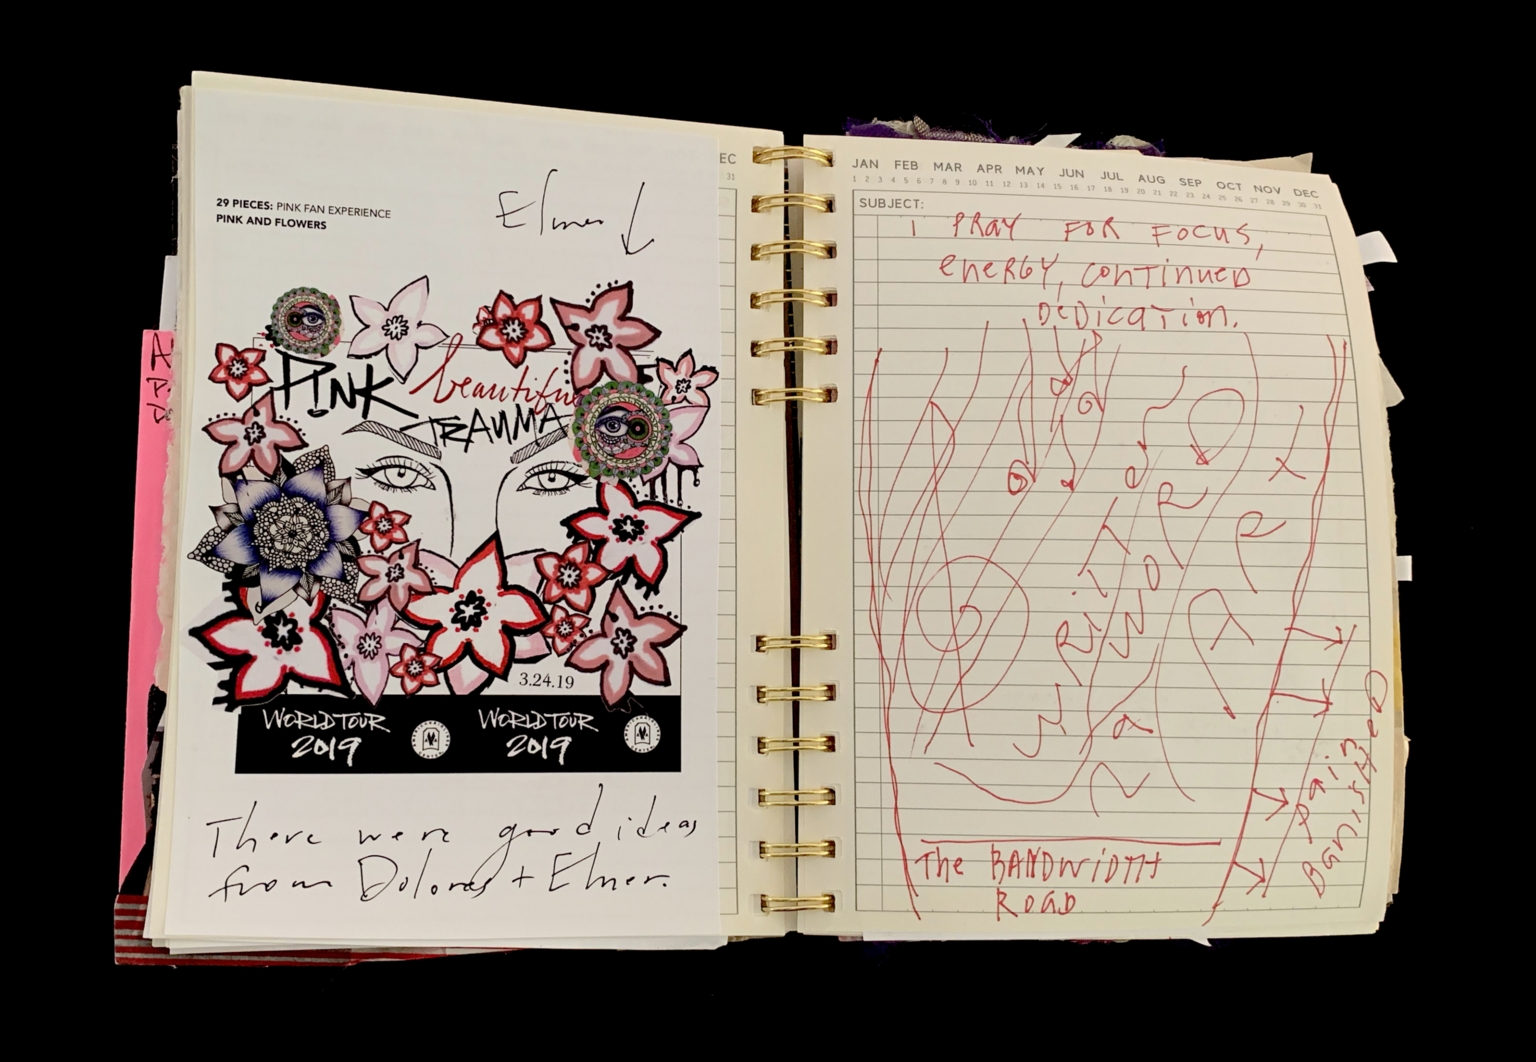 29 PIECES: PINK FAN EXPERIENCE
PINK AND FLOWERS
Elmer
P!NK beautiful
TRAUMA
3.24.19
WORLD TOUR
2019
WORLD TOUR
2019
There were good ideas
from Dolores + Elmer.
EC
31
JAN FEB MAR APR MAY JUN JUL AUG SEP OCT NOV DEC
1 2 3 4 5 6 7 8 9 10 11 12 13 14 15 16 17 18 19 20 21 22 23 24 25 26 27 28 29 30 31
SUBJECT:
I PRAY FOR FOCUS,
ENERGY, CONTINUED
DEDICATION.
WRITT
WOR
ART
Pain
BANISHED
The BANDWIDTH
ROAD